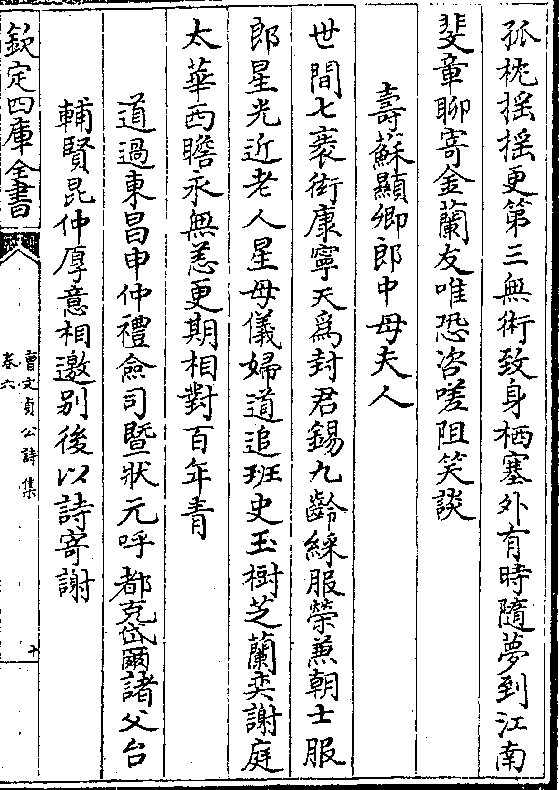 孤枕搖搖更第三無術致身栖塞外有時隨夢到江南
斐章聊寄金蘭友唯恐咨嗟阻笑談
壽蘇顯卿郎中母夫人
世間七袠衍康寧天爲封君錫九齡綵服榮兼朝士服
郎星光近老人星母儀婦道追班史玉樹芝蘭奕謝庭
太華西瞻永無恙更期相對百年青
道過東昌申仲禮僉司暨狀元呼都克岱爾諸父台
輔賢昆仲厚意相邀别後以詩寄謝
欽定四庫全書
曹文貞公詩集
卷六
十